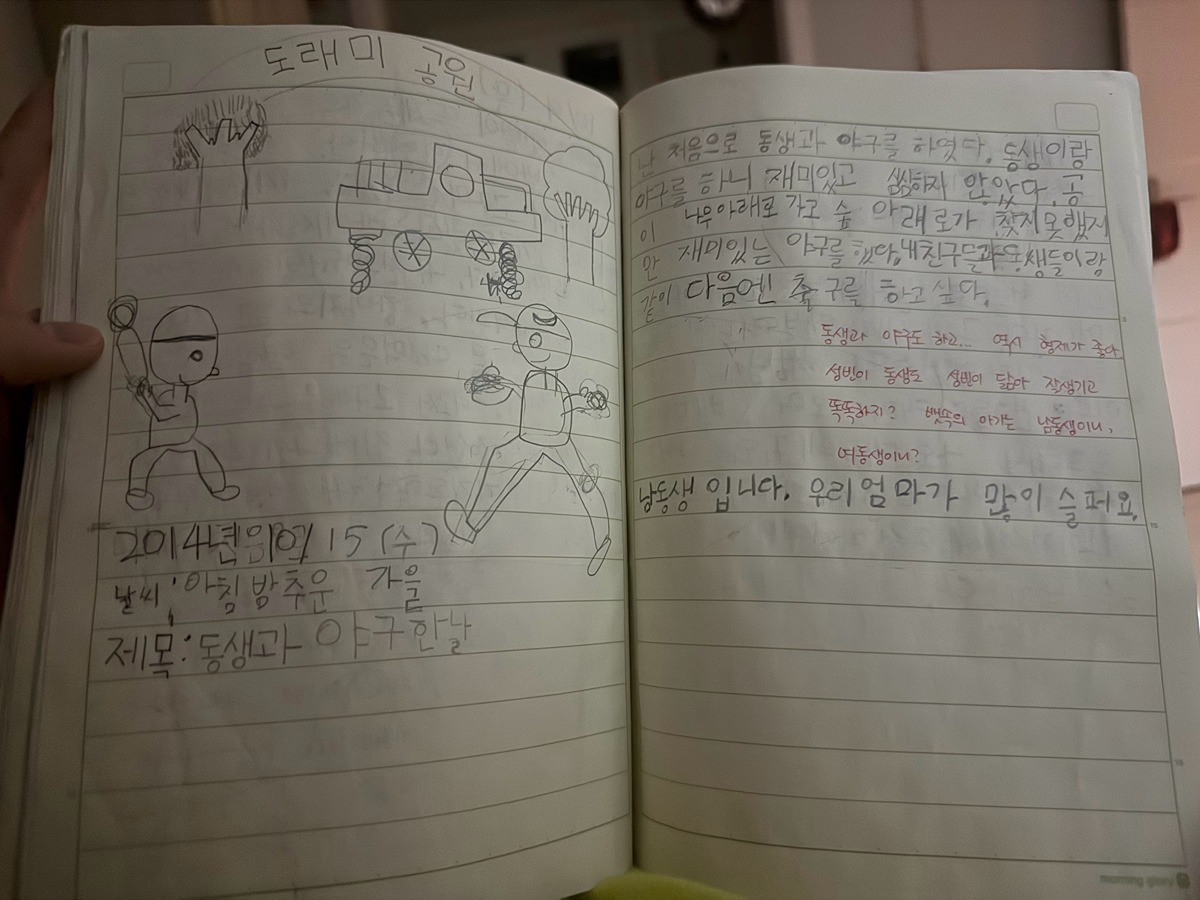 도래미 공원
2014년 10월 15 (수)
날씨: 아침밤추운 가을
제목: 동생과 야구한날
난 처음으로 동생과 야구를 하였다. 동생이랑
야구를 하니 재미있고 씸씸하지 않았다. 공
이 나무아래로 가고 숲 아래로가 찾지못했지
만 재미있는 야구를 했다. 내친구들과 동생들이랑
같이 다음엔 축구를 하고 싶다.
동생과 야구도 하고... 역시 형제가 좋아
성빈이 동생도 성빈이 닮아 잘생기고
똑똑하지? 뱃속의 아기는 남동생이니,
여동생이니?
남동생 입니다. 우리 엄마가 많이 슬퍼요.
morning glory